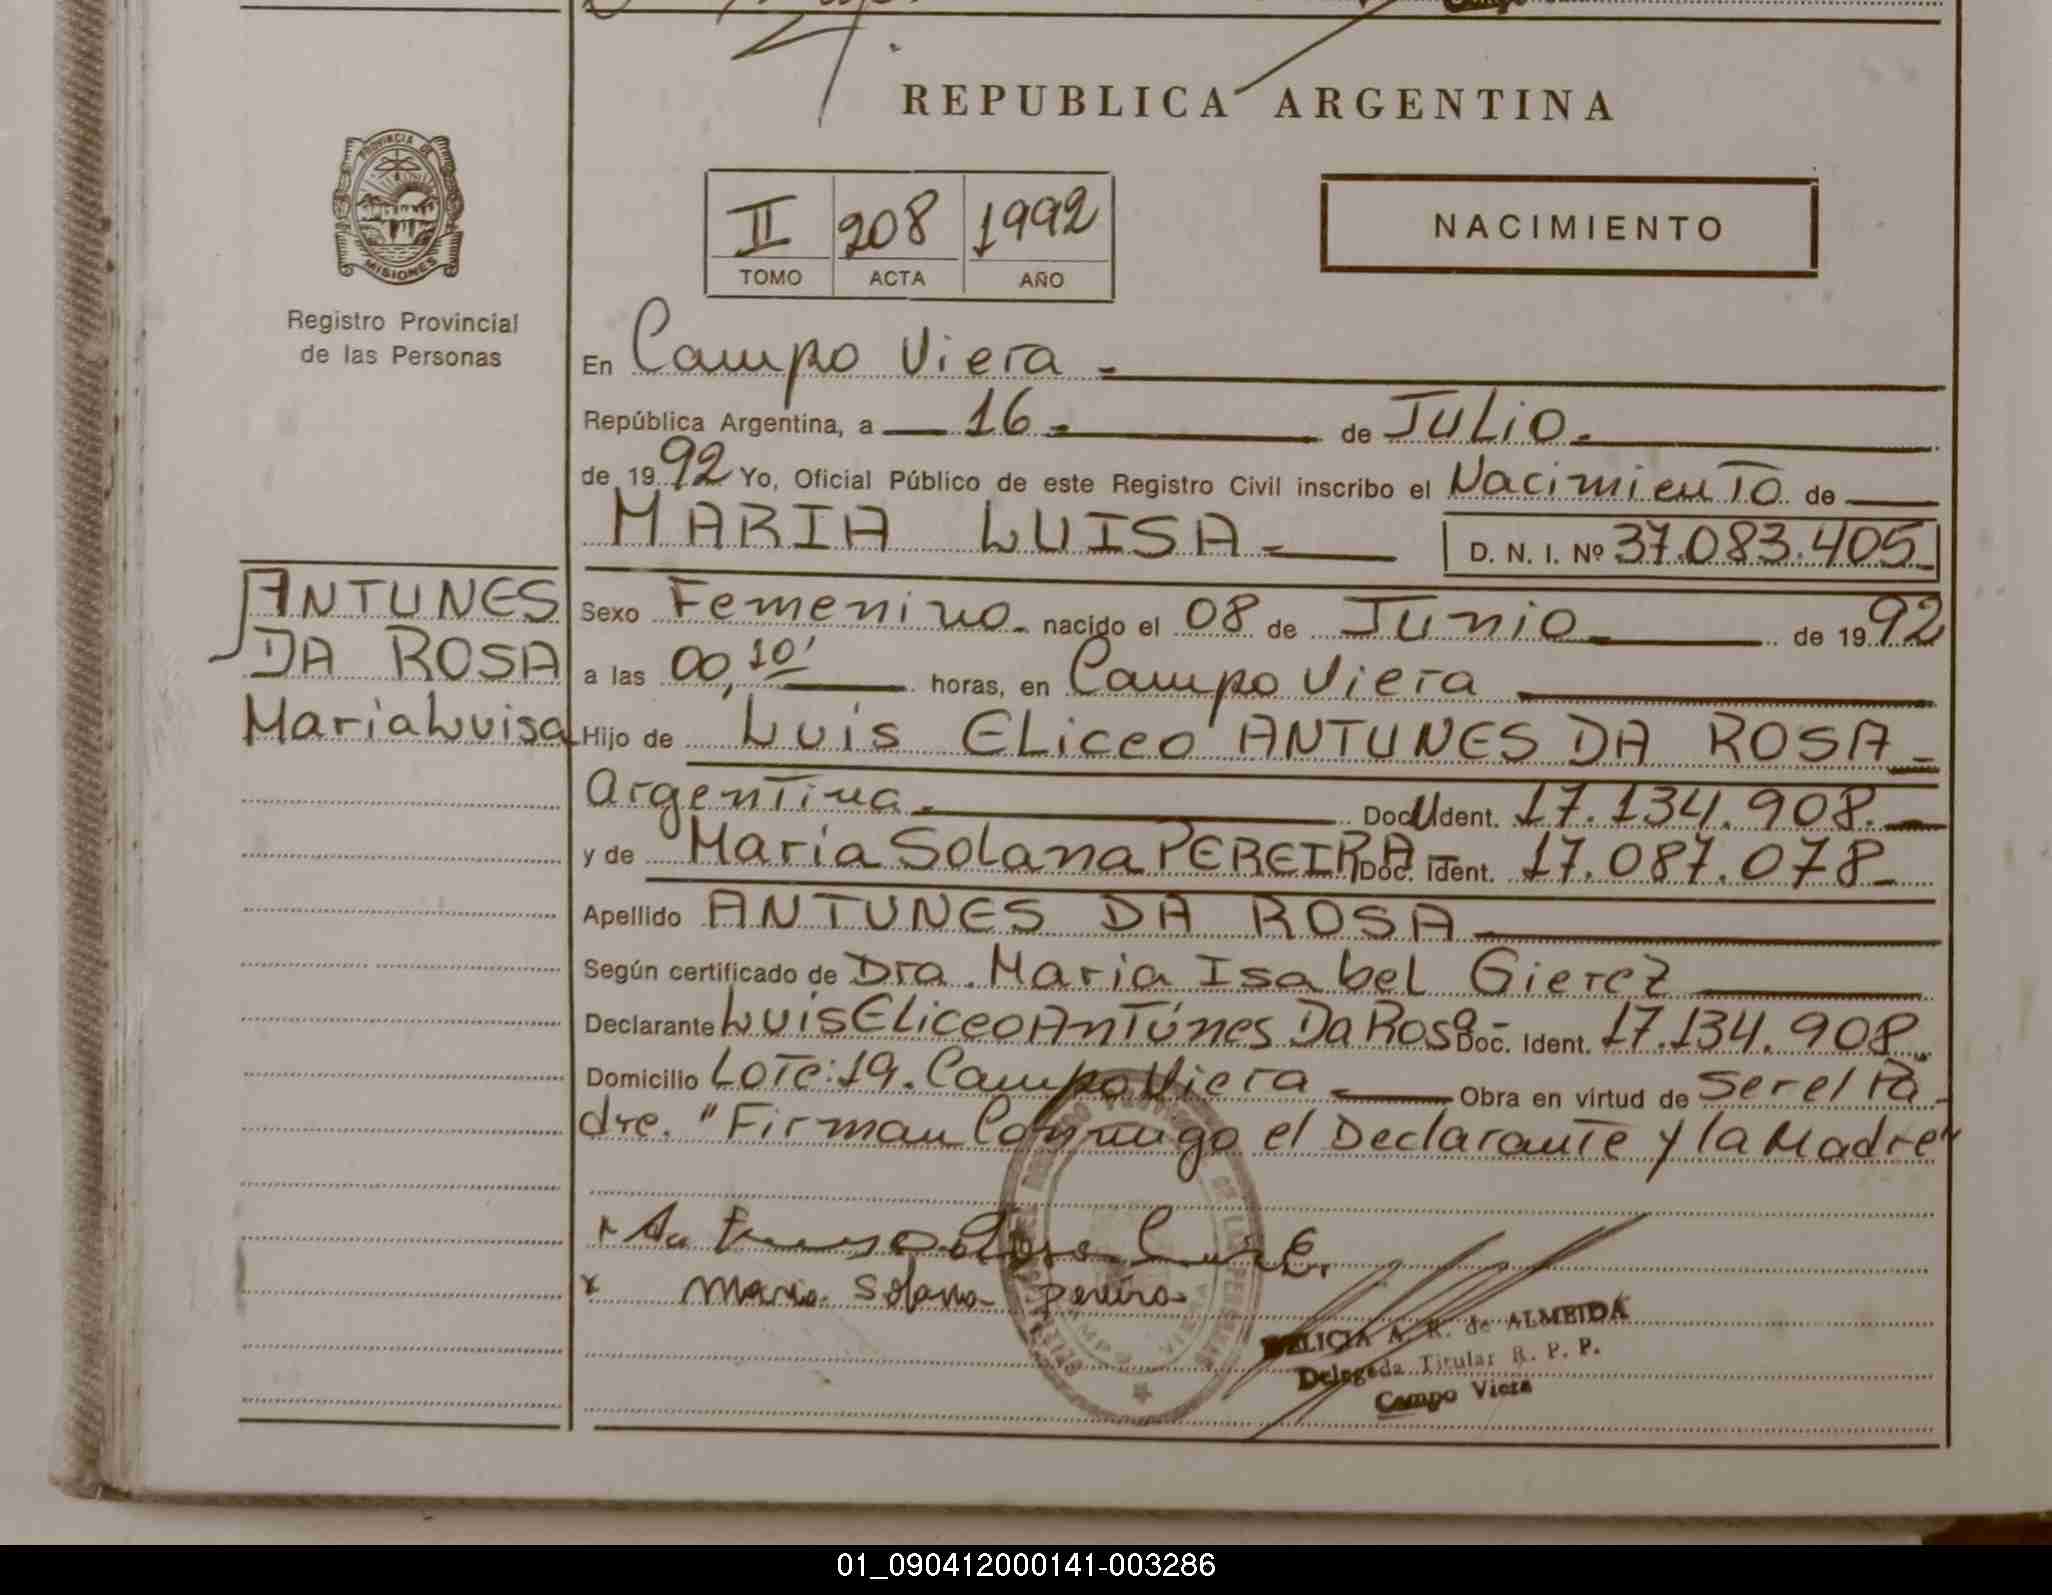 REPUBLICA ARGENTINA
PROVINCIA DE
MISIONES
Registro Provincial
de las Personas
II 208 1992
TOMO ACTA AÑO
NACIMIENTO
En Campo Viera -
República Argentina, a 16- de JULIO.
de 1992 Yo, Oficial Público de este Registro Civil inscribo el Nacimiento de
MARIA LUISA- D. N. I. Nº 37.083.405-
ANTUNES
DA ROSA
Maria Luisa
Sexo Femenino- nacido el 08 de Junio- de 1992
a las 00,10' horas, en Campo Viera
Hijo de Luis Eliceo ANTUNES DA ROSA-
Argentina. DocU Ident. 17.134.908.-
y de Maria Solana PEREIRA- Doc. Ident. 17.087.078-
Apellido ANTUNES DA ROSA
Según certificado de Dra. Maria Isabel Gierez
Declarante Luis Eliceo Antúnes Da Rosa- Doc. Ident. 17.134.908.
Domicilio Lote:19. Campo Viera Obra en virtud de Ser el Pa-
dre. "Firman Conmigo el Declarante y la Madre"
x Maria Solana Pereira
FELICIA A. R. de ALMEIDA
Delegada Titular R. P. P.
Campo Viera
01_090412000141-003286